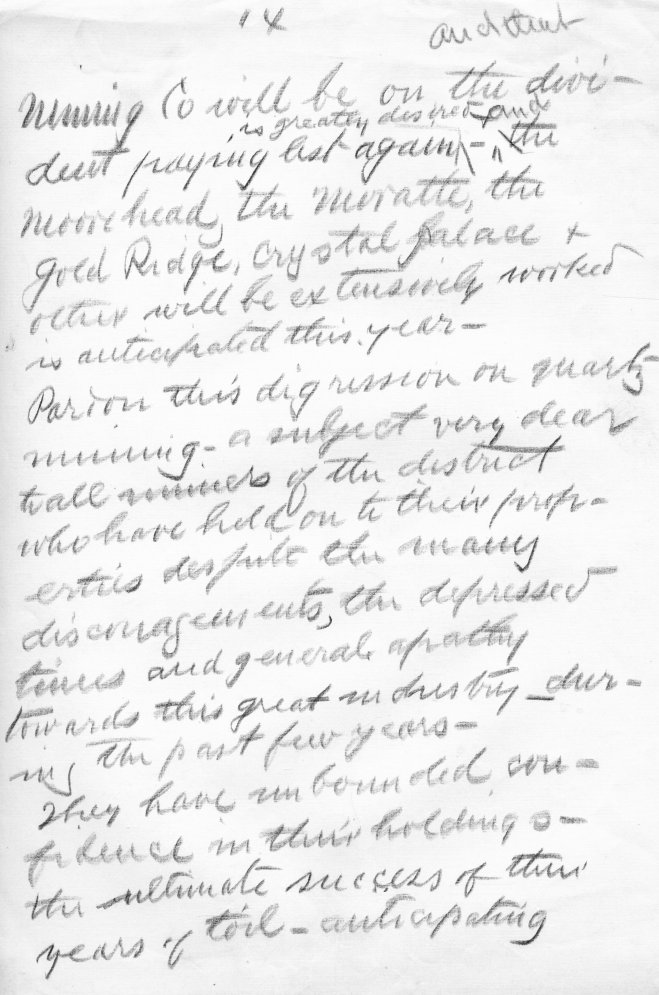 14
and that
Mining Co will be on the divi-
is greatly desired and
dent paying list again - the
Moorehead, the Moratte, the
Gold Ridge, Crystal Palace +
other will be extensively worked
is anticipated this year -
Pardon this digression on quartz
mining - a subject very dear
to all miners of the district
who have held on to their prop-
erties despite the many
discouragements, the depressed
times and general apathy
towards this great industry - dur-
ing the past few years -
They have unbounded con-
fidence in their holdings -
the ultimate success of their
years of toil - anticipating